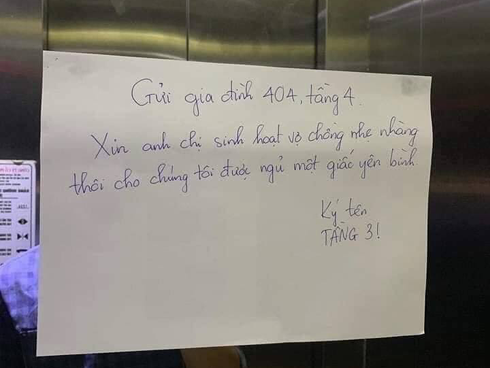 Gửi gia đình 404, tầng 4.
Xin anh chị sinh hoạt vợ chồng nhẹ nhàng
thôi cho chúng tôi được ngủ một giấc yên bình
Ký tên
TẦNG 3!